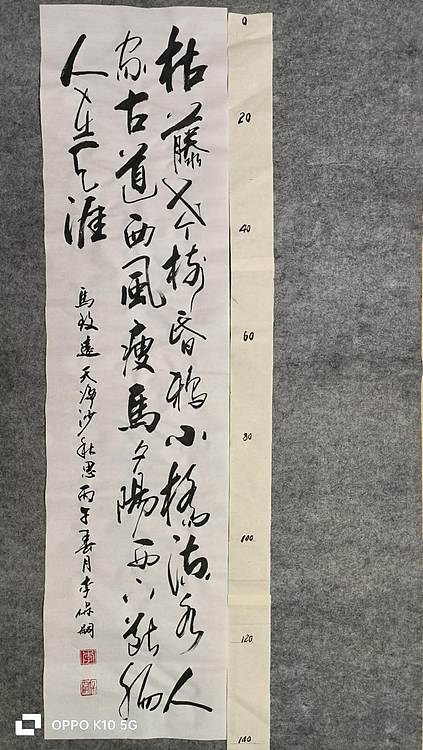 枯藤老樹昏鴉小橋流水人
家古道西風瘦馬夕陽西下斷腸
人在天涯
馬致遠天淨沙秋思丙午春月李保
0
20
40
60
80
100
120
140
OPPO K10 5G